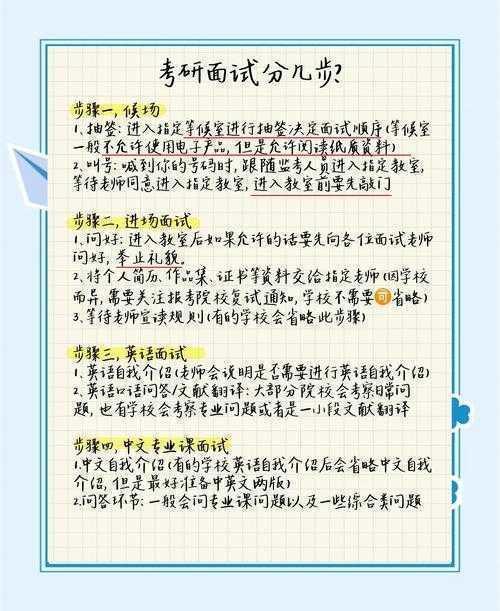 考研面试分几步?
步骤一,候场
1、抽签:进入指定等候室进行抽签决定面试顺序(等候室
一般不允许使用电子产品,但是允许阅读纸质资料)
2、叫号:喊到你的号码时,跟随监考人员进入指定教室,
等待老师同意进入指定教室,进入教室前要先敲门
步骤二,进场面试
1、问好:进入教室后如果允许的话要先向各位面试老师
问好,举止礼貌。
2、将个人简历、作品集、证书等资料交给指定老师(因学校
而异,需要关注报考院校复试通知,学校不需要可省略)
3、等待老师宣读规则(有的学校会省略此步骤)
步骤三,英语面试
1、英语自我介绍(老师会说明是否需要进行英语自我介绍)
2、英语口语问答/文献翻译:大部分院校会考察日常问
题,也有学校会考察专业问题或者是一小段文献翻译
步骤四,中文专业课面试
1.中文自我介绍(有的学校英语自我介绍后会省略中文自我
介绍,但是最好准备中英文两版)
2.问答环节:一般会问专业课问题以及一些综合类问题